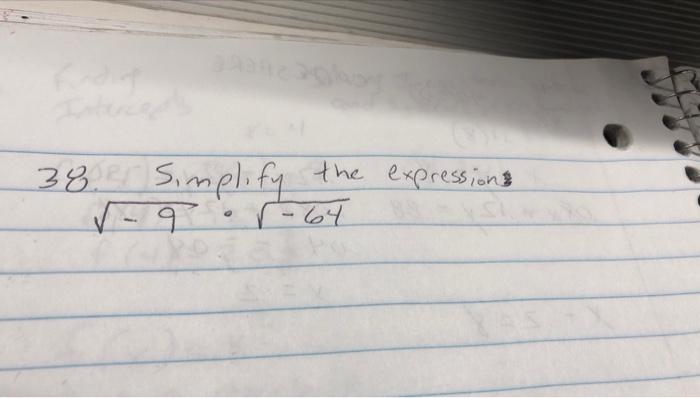 38. Simplify the expressions
√-9 · √-64